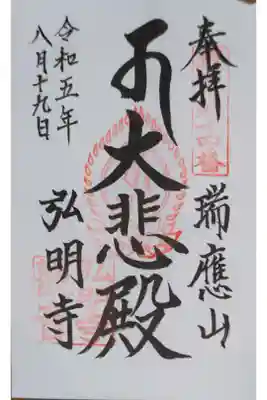 奉拝
瑞應山
大悲殿
弘明寺
令和五年
八月十九日